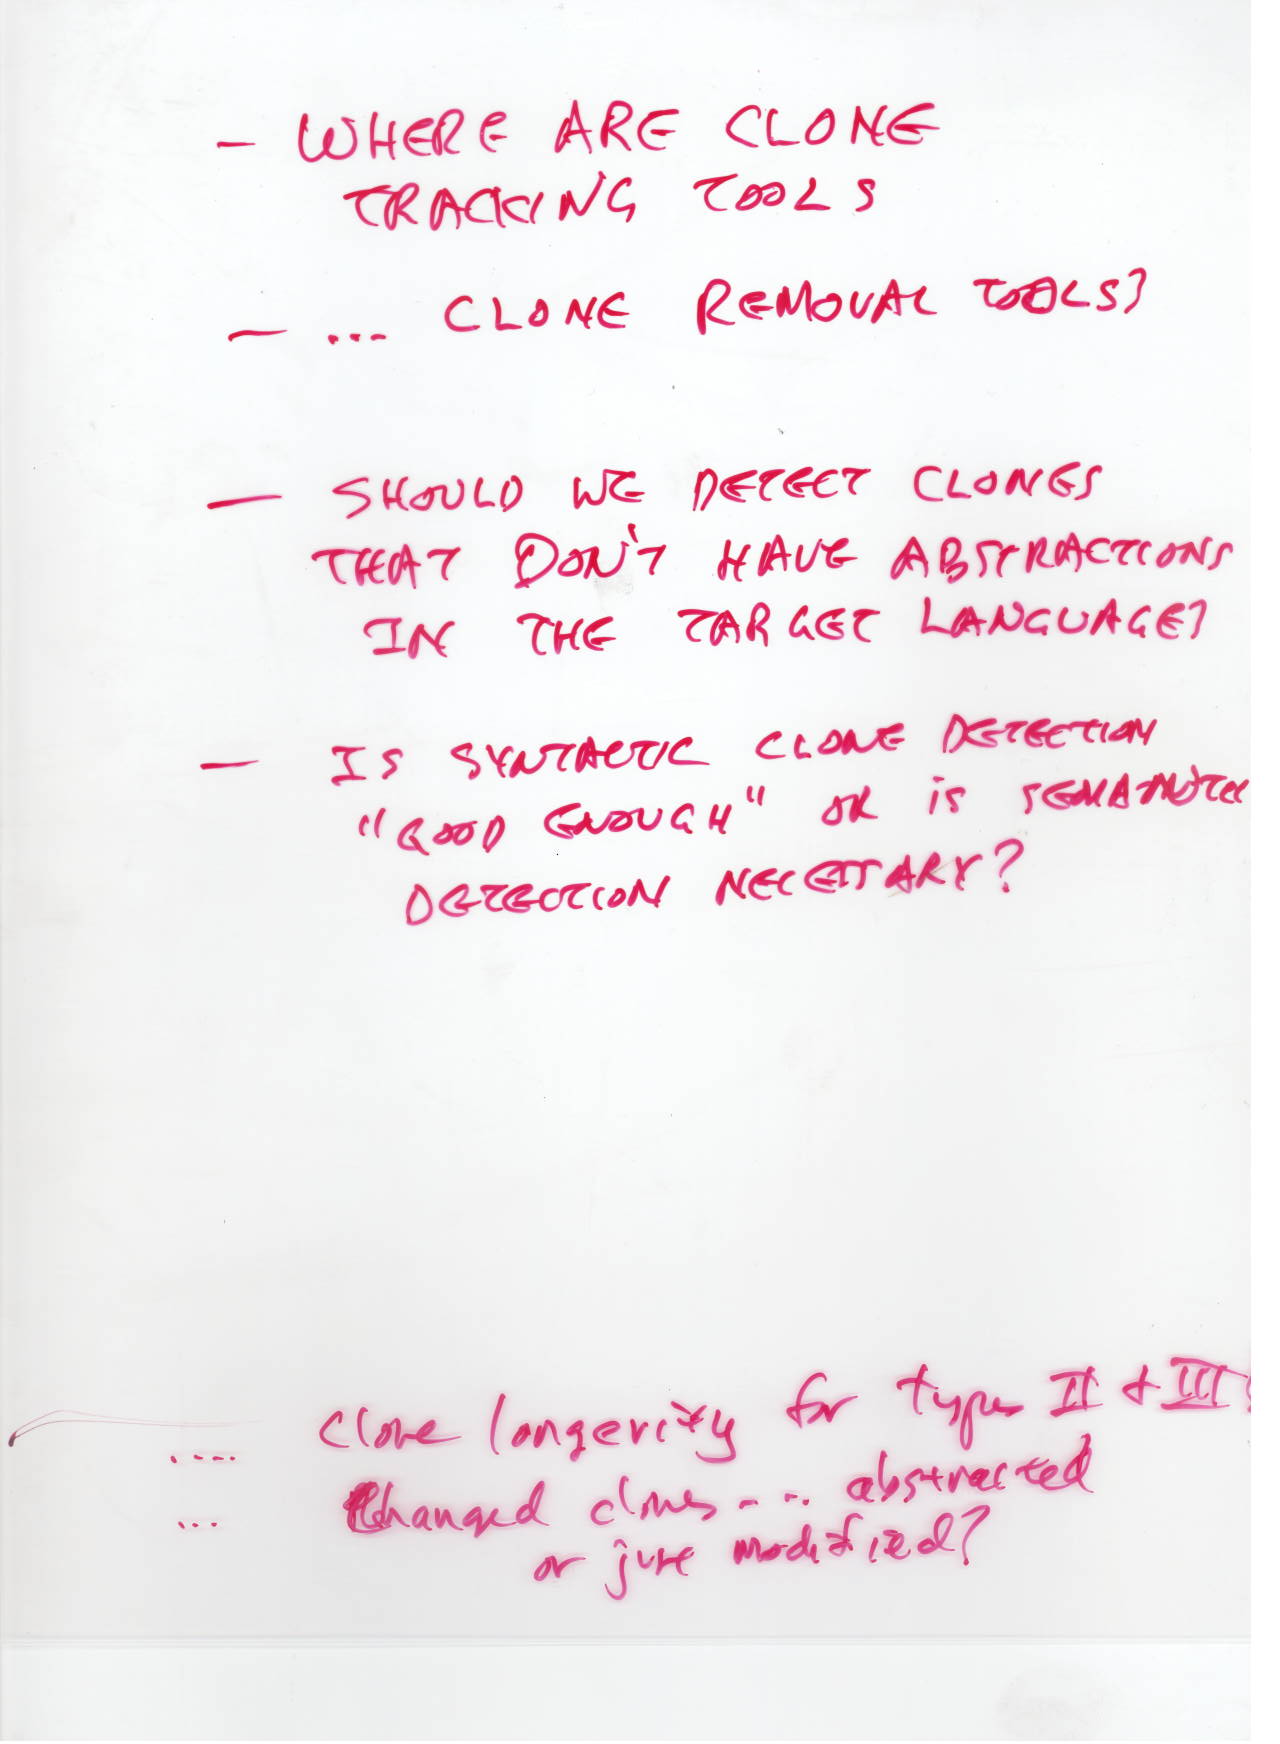 - WHERE ARE CLONE
TRACKING TOOLS
- ... CLONE REMOVAL TOOLS?
- SHOULD WE DETECT CLONES
THAT DON'T HAVE ABSTRACTIONS
IN THE TARGET LANGUAGE?
- IS SYNTACTIC CLONE DETECTION
"GOOD ENOUGH" OR is
DETECTION NECESSARY?
.... Clone longevity for types II & III
... Changed clones... abstracted
or just modified?